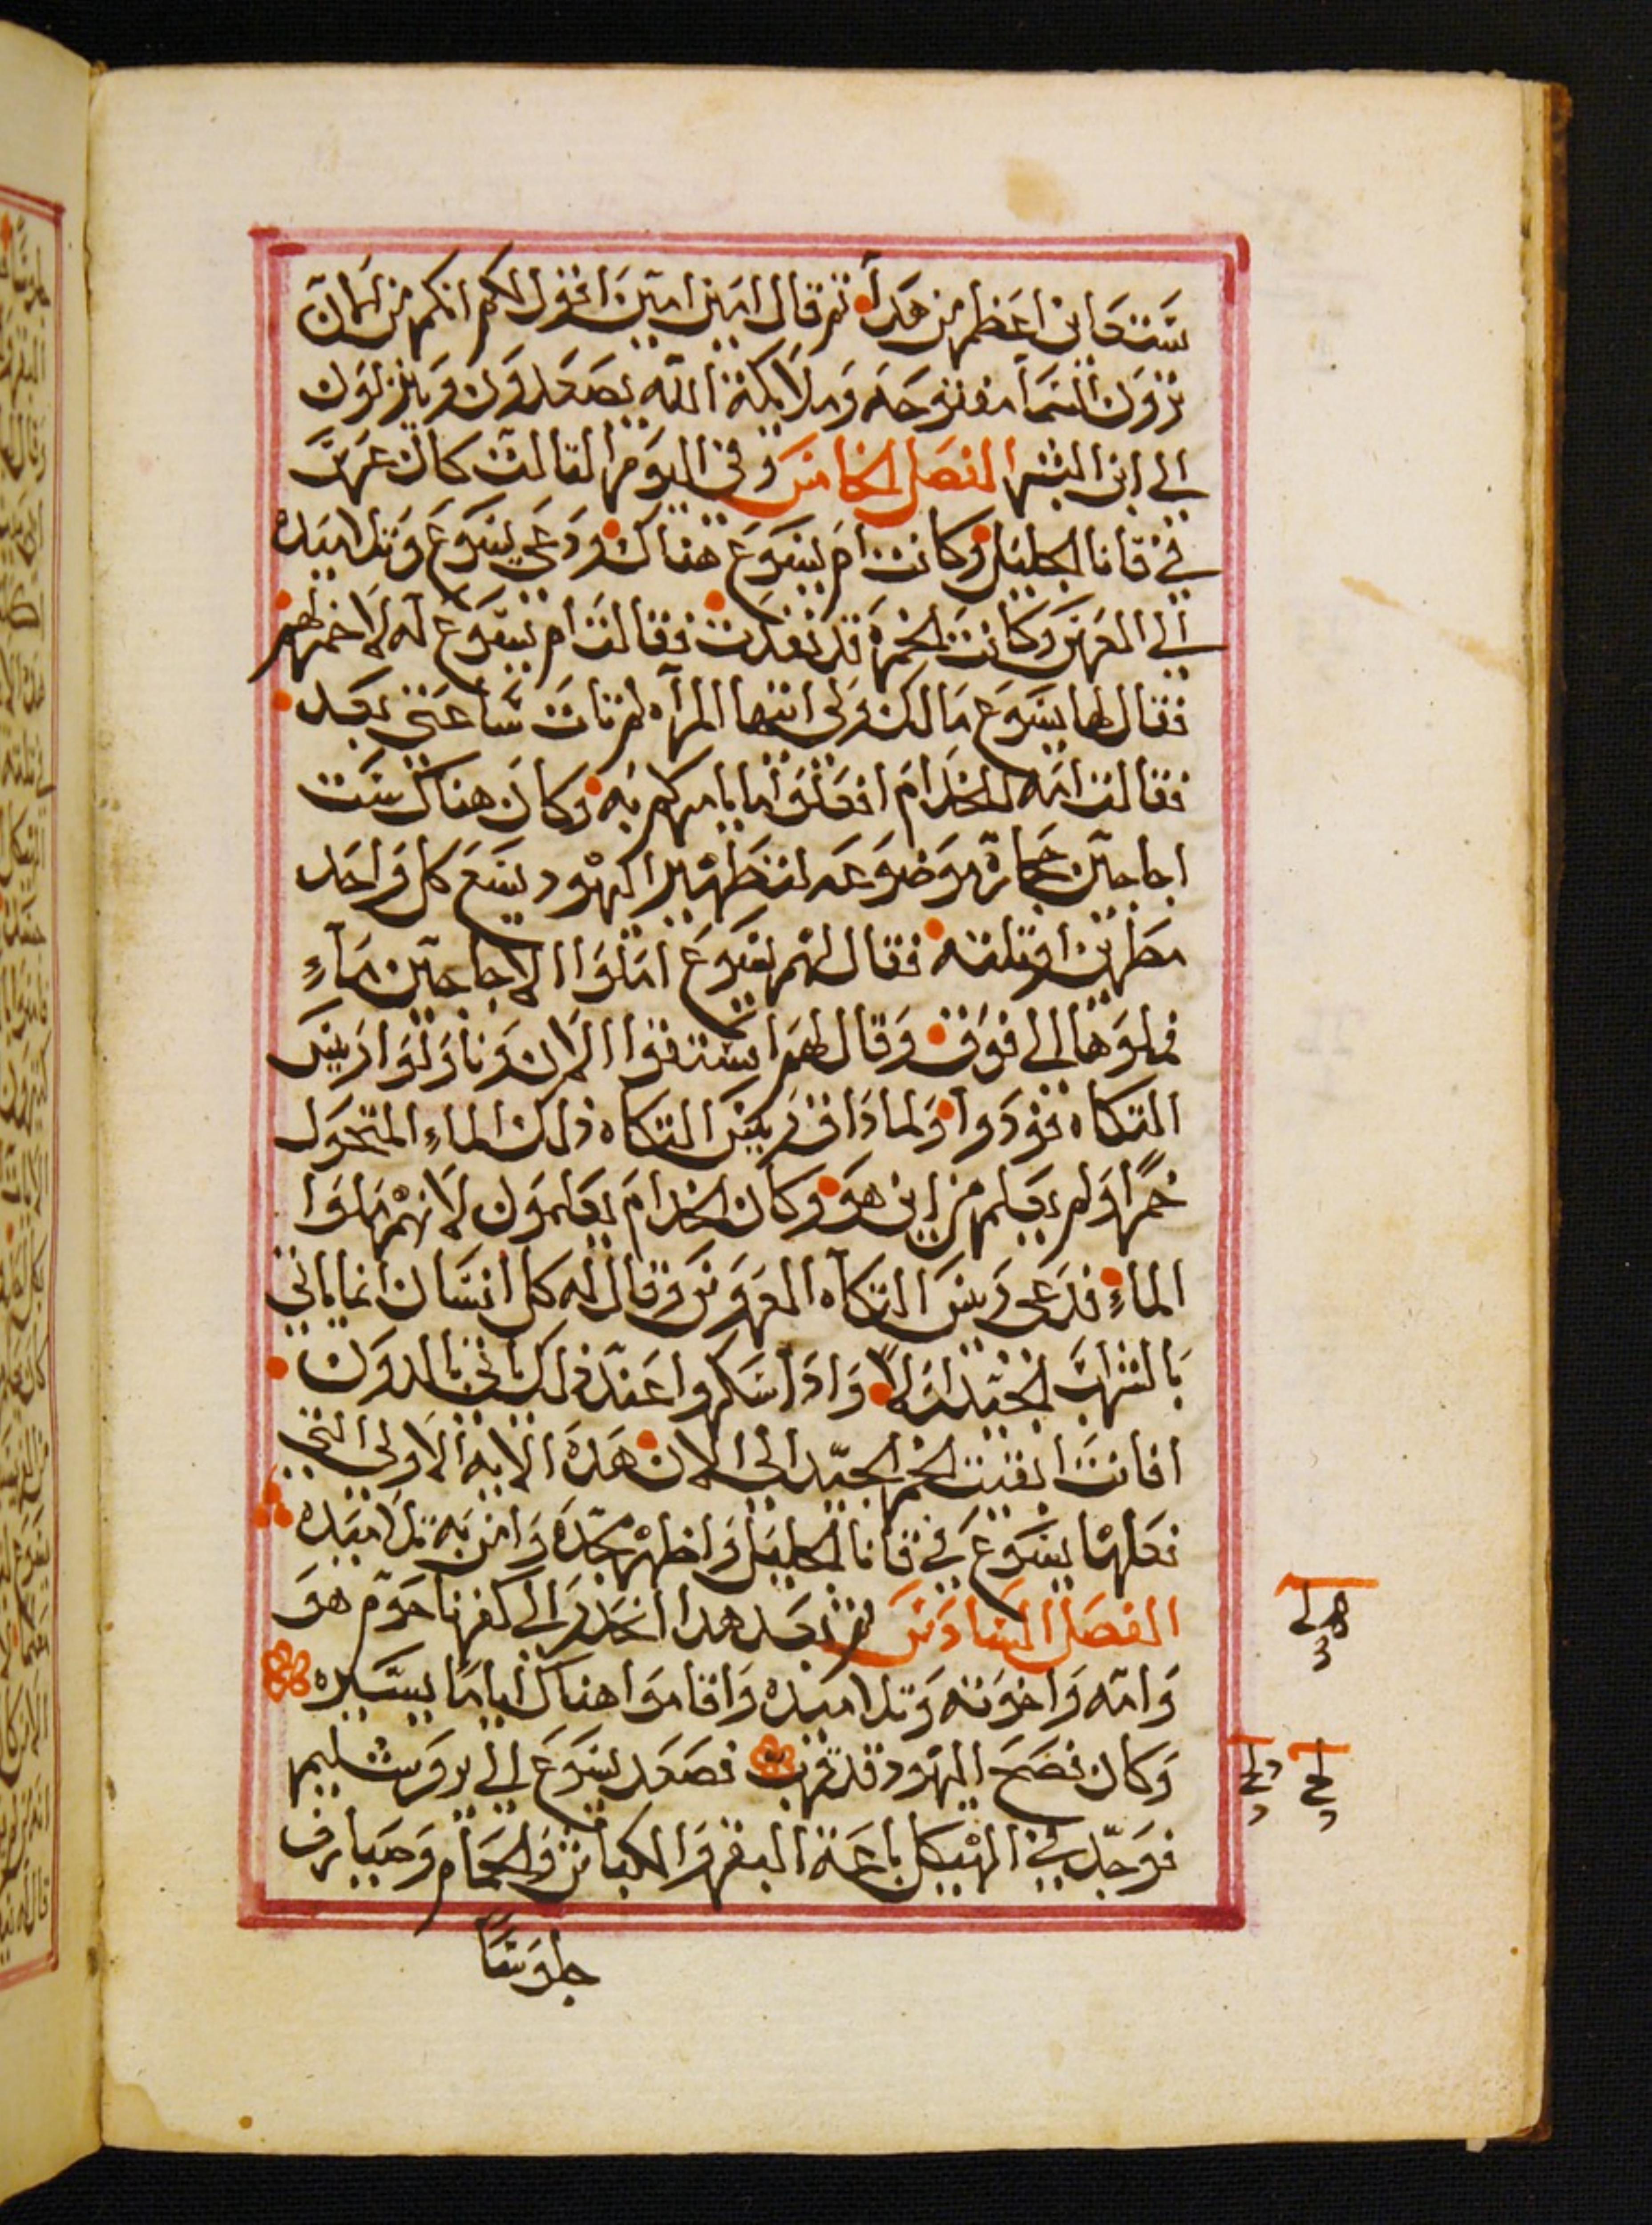 ستعاين اعظم من هدا ثم قال امين امين اقول لكم انكم من الان
ترون السما مفتوحه وملايكة الله يصعدون وينزلون
الي ابن البشر الفصل الخامس وفي اليوم الثالث كان عرس
في قانا الجليل وكانت ام يسوع هناك ودعي يسوع وتلاميده
الي العرس وكانت الخمره قد نفدت فقالت ام يسوع له لا خمر لهم
فقال لها يسوع مالك ولي ايتها المرآه لم تات ساعتي بعد
فقالت امه للخدام افعلوا ما يامركم به وكان هناك ست
اجاجين حجارة موضوعه لتطهير اليهود يسع كل واحد
مطرين او ثلثه فقال لهم يسوع املوا الاجاجين ماء
فملوها الي فوق وقال لهم استقوا الان وناولوا ريس
المتكاه فودوا ولما ذاق ريس المتكاه ذلك الماء المتحول
خمرا ولم يعلم من اين هو وكان الخدام يعلمون لانهم ملوا
الماء فدعي ريس المتكآه العروس وقال له كل انسان انما ياتي
بالشراب الجيد اولا واذا سكروا عند ذلك ياتي بالدون
افانت ابقيت الخمر الجيد الي الان هده الايه الاولي التي
فعلها يسوع في قانا الجليل واظهر مجده وامن به تلاميده
الفصل السادس ثم بعد هدا انحدر الي كفرناحوم هو
وامه واخوته وتلاميده واقاموا هناك اياما يسيره
وكان فصح اليهود قد قرب فصعد يسوع الي يروشليم
فوجد في الهيكل باعة البقر والكباش والحمام وصيارف
جلوسا